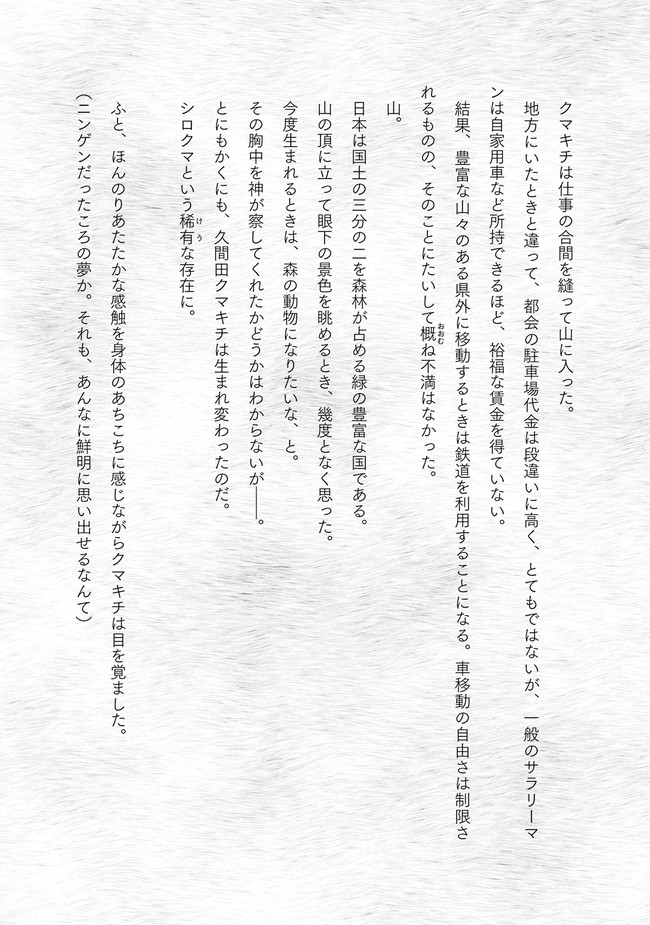 クマキチは仕事の合間を縫って山に入った。
地方にいたときと違って、都会の駐車場代金は段違いに高く、とてもではないが、一般のサラリーマ
ンは自家用車など所持できるほど、裕福な賃金を得ていない。
結果、豊富な山々のある県外に移動するときは鉄道を利用することになる。車移動の自由さは制限さ
れるものの、そのことにたいして概ね不満はなかった。
おおむ
山。
日本は国土の三分の二を森林が占める緑の豊富な国である。
山の頂に立って眼下の景色を眺めるとき、幾度となく思った。
今度生まれるときは、森の動物になりたいな、と。
その胸中を神が察してくれたかどうかはわからないが――。
とにもかくにも、久間田クマキチは生まれ変わったのだ。
シロクマという稀有な存在に。
けう
ふと、ほんのりあたたかな感触を身体のあちこちに感じながらクマキチは目を覚ました。
（ニンゲンだったころの夢か。それも、あんなに鮮明に思い出せるなんて）